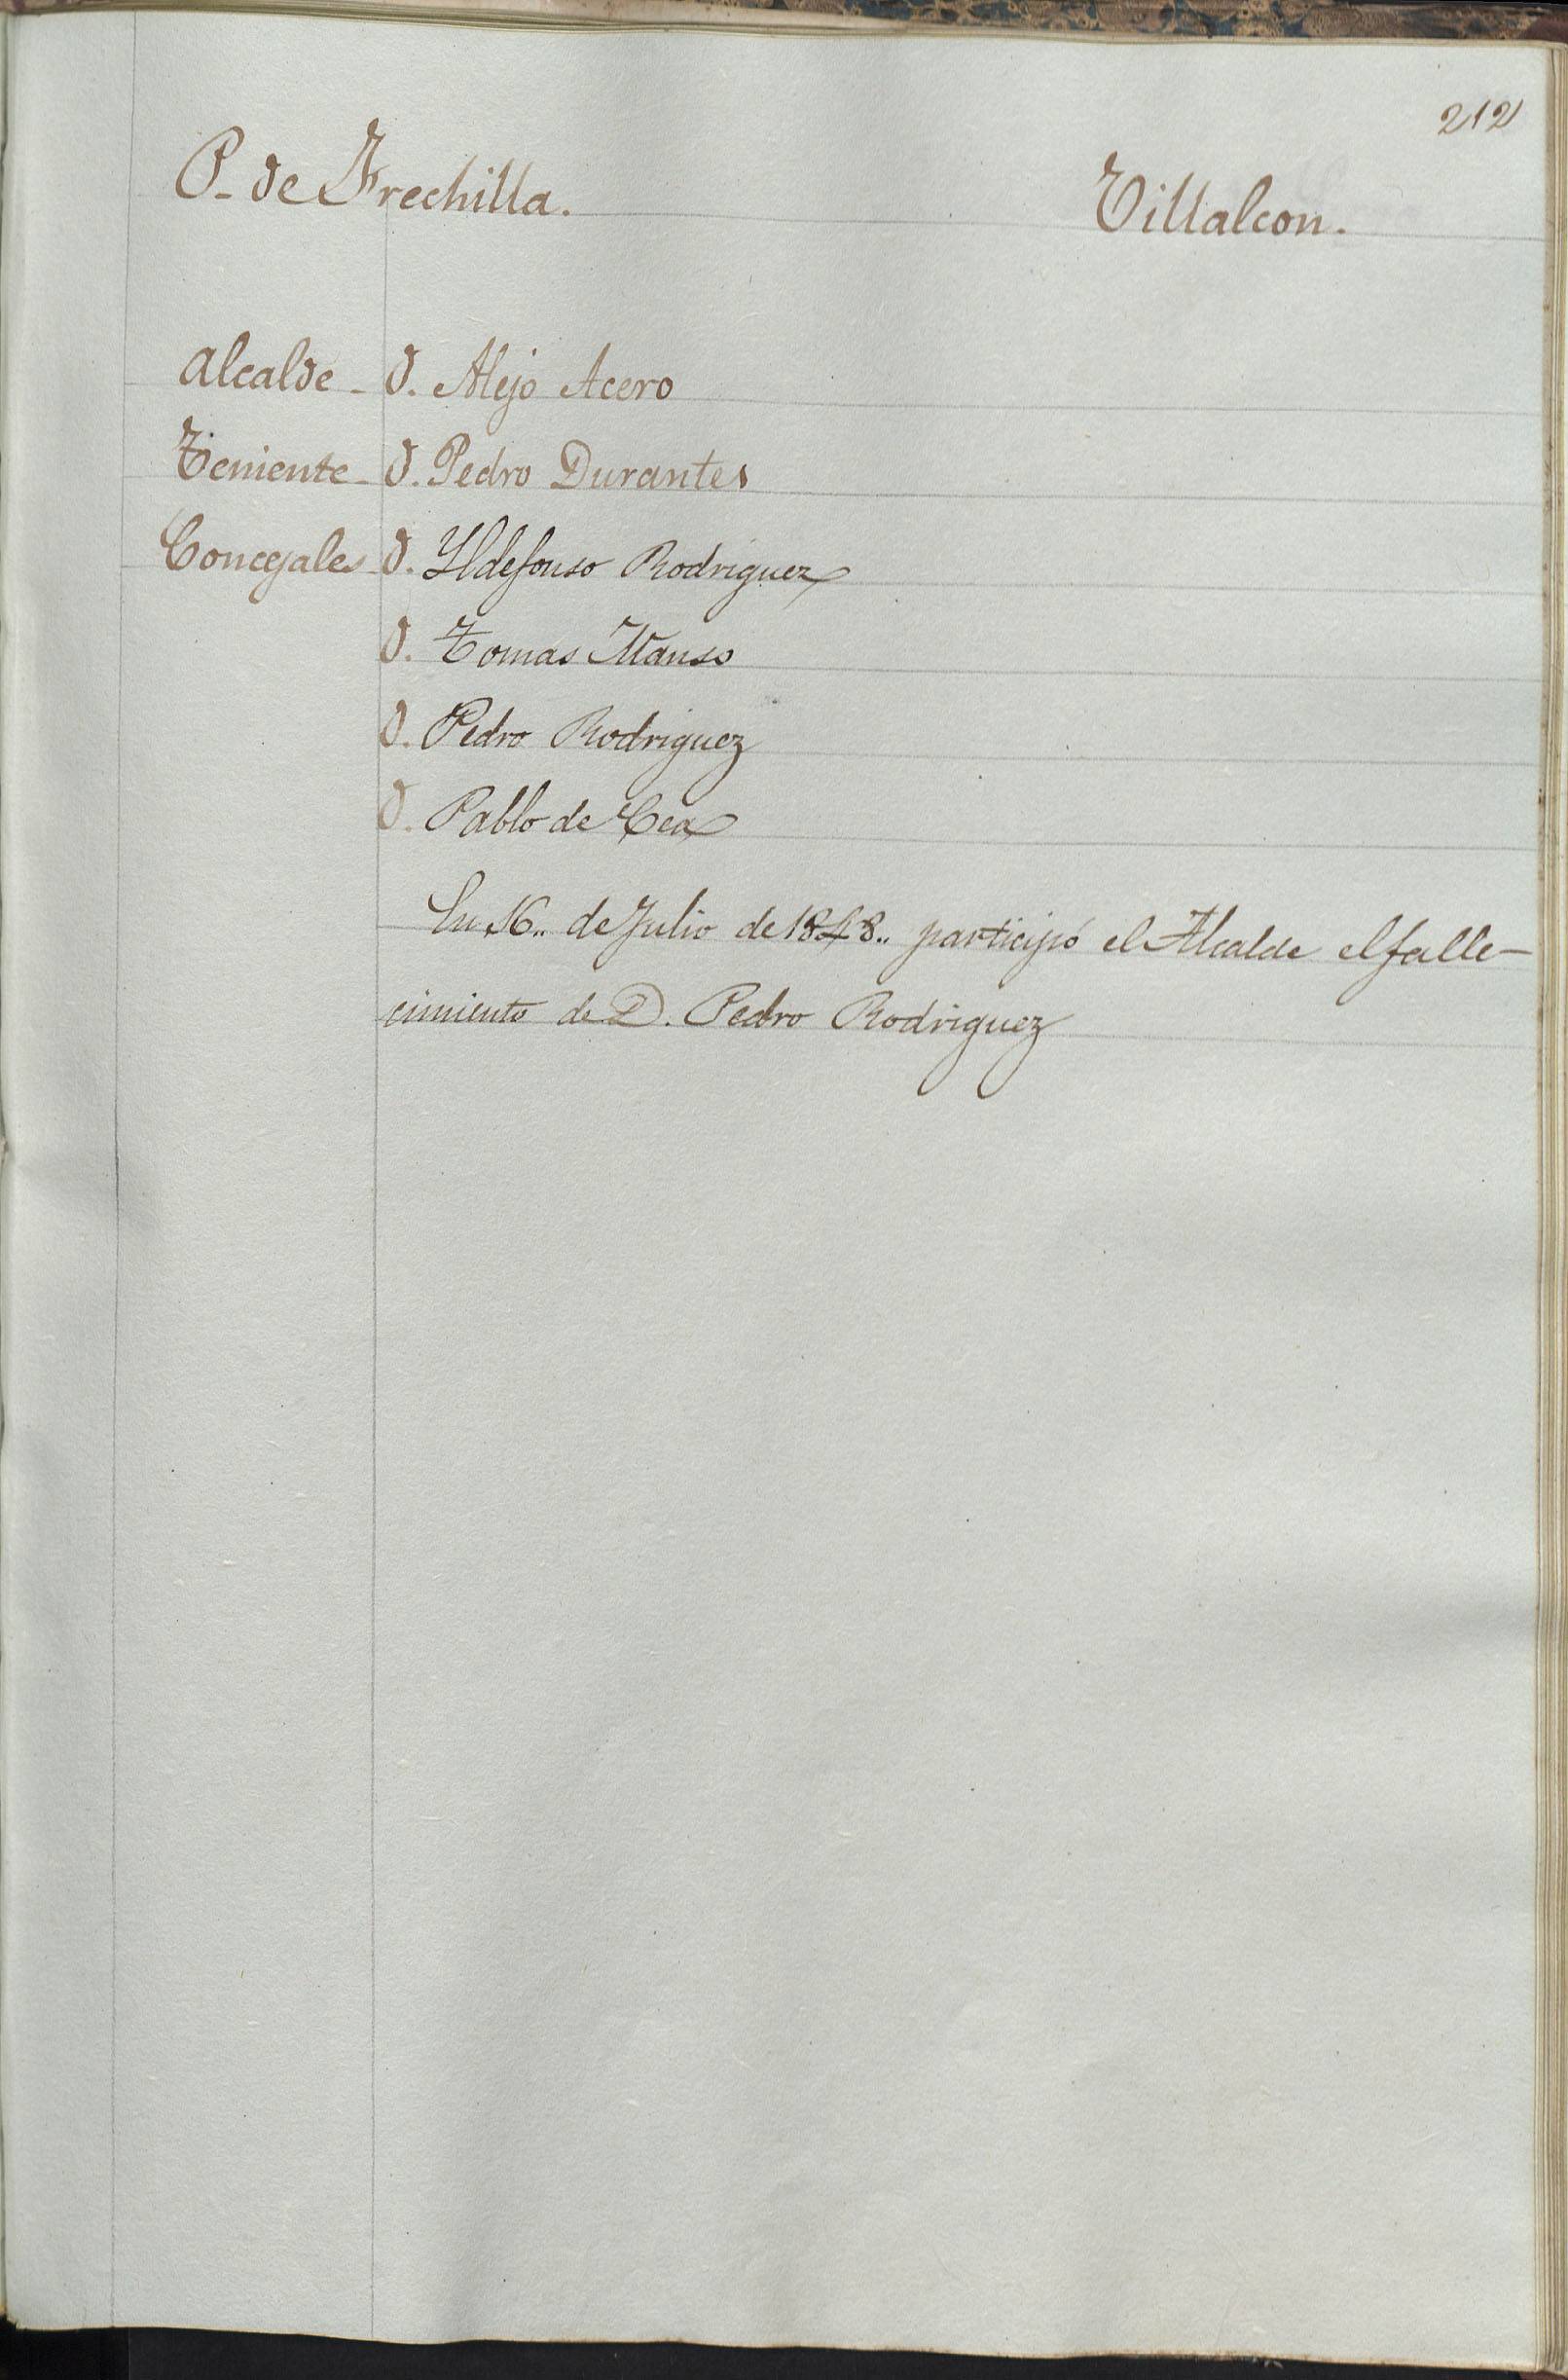 212
P. de Frechilla. Villalcon.
Alcalde - D. Alejo Acero
Teniente - D. Pedro Durantes
Concejales D. Yldefonso Rodriguez
D. Tomas Manso
D. Pedro Rodriguez
D. Pablo de Cea
En 16.. de Julio de 1848.. participó el Alcalde el falle-
cimiento de D. Pedro Rodriguez